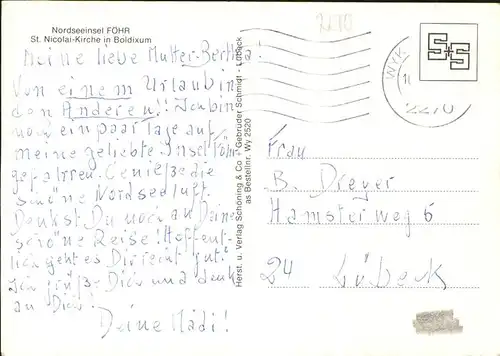 Nordseeinsel FÖHR
St. Nicolai-Kirche in Boldixum
Meine liebe Mutter-Bertha!
Von einem Urlaub in
den Anderen!! Ich bin
noch ein paar Tage auf
meine geliebte Insel Föhr
gefahren. Genieße die
schöne Nordseeluft.
Denkst Du noch an Deine
schöne Reise? Hoffent-
lich geht es Dir recht gut!
Ich grüße Dich und denk
an Dich!
Deine Mädi!
Herst. u. Verlag Schöning & Co + Gebrüder Schmidt - Lübeck
as Bestellnr. Wy 2520
2270
WYK
2270
S+S
Frau
B. Dreyer
Hamsterweg 6
24 Lübeck